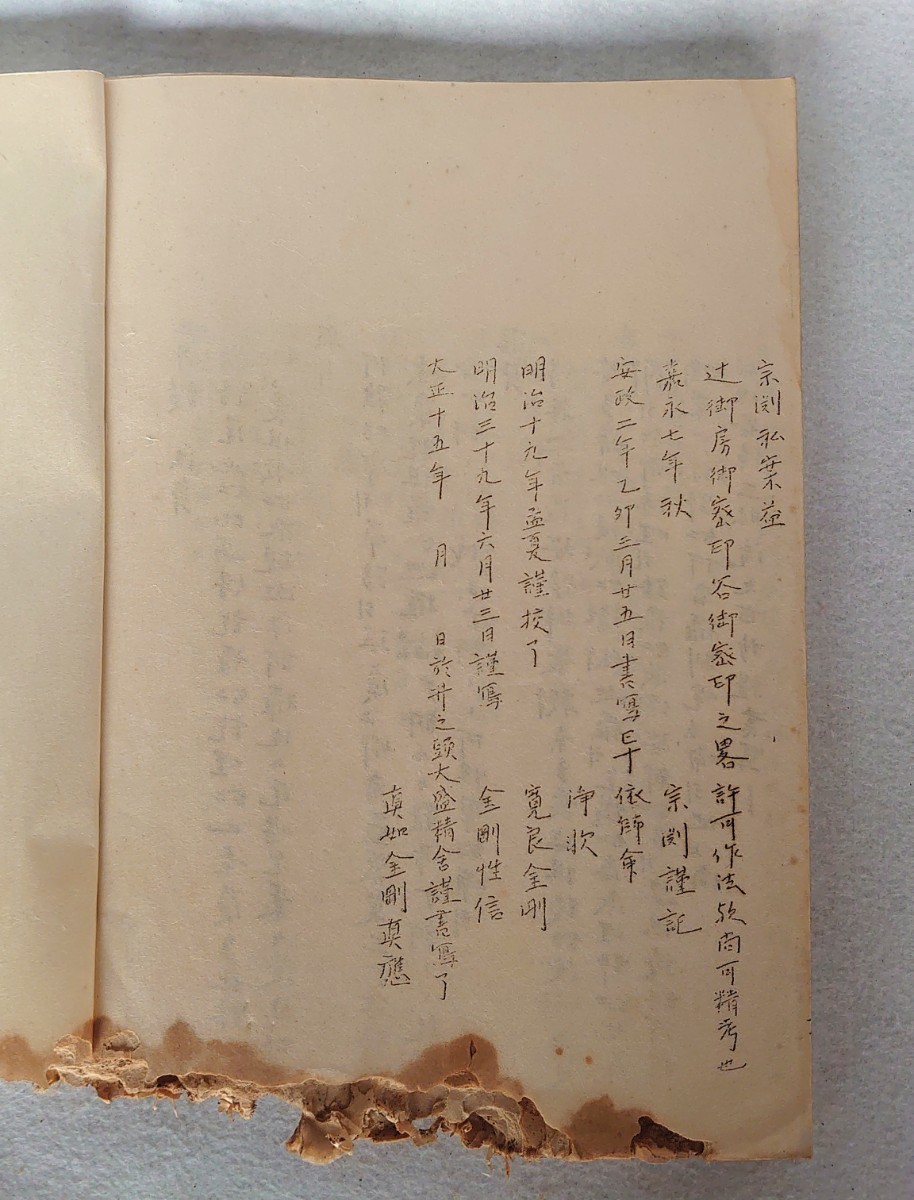 宗渕私案並
辻御房御密印谷御密印之畧許可作法欤尚可精考也
嘉永七年秋 宗渕謹記
安政二年乙卯三月廿五日書寫已十 依師命
浄欣
明治十九年孟夏謹挍了 寛良金剛
明治三十九年六月廿三日謹寫 金剛性信
大正十五年 月 日於井之頭大盛精舎謹書寫了
真如金剛真應